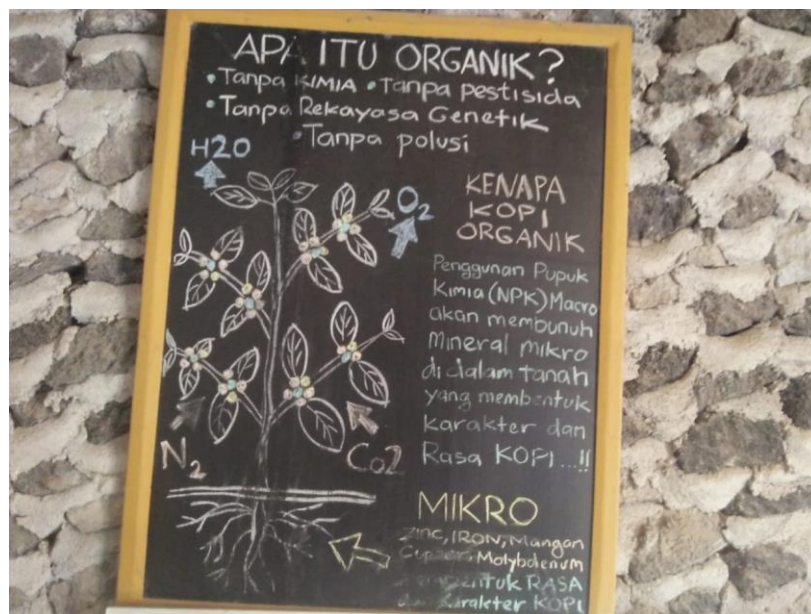 APA ITU ORGANIK?
• Tanpa KIMIA • Tanpa pestisida
• Tanpa Rekayasa Genetik
• Tanpa polusi
H2O
O2
KENAPA
KOPI
ORGANIK
Penggunan Pupuk
Kimia (NPK) Macro
akan membunuh
Mineral mikro
di dalam tanah
yang membentuk
karakter dan
Rasa KOPI...!!
N2
CO2
MIKRO
Zinc, IRON, Mangan
Molybdenum
RASA
Karakter KOPI